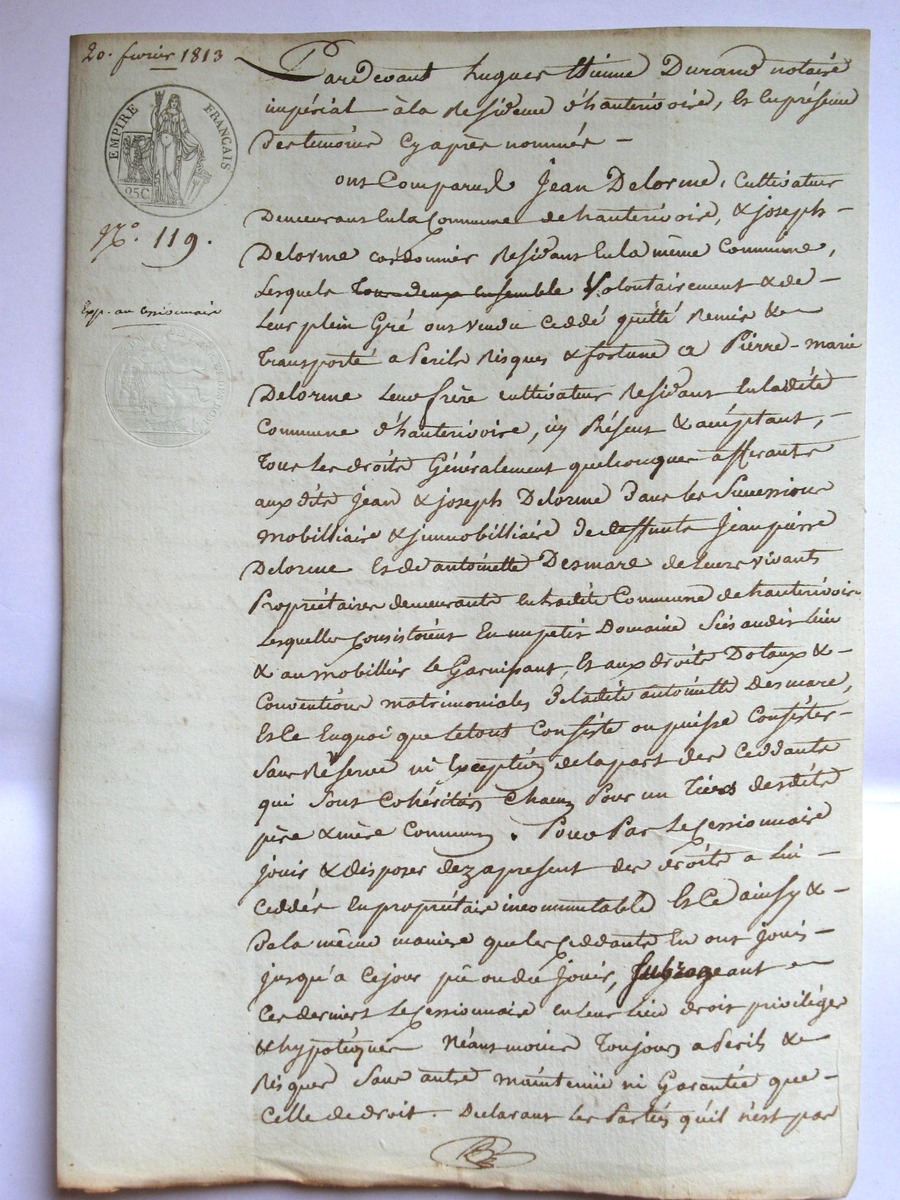 20. fevrier 1813
EMPIRE FRANÇAIS
25C
N.o 119.
Exp. au cessionnaire
Pardevant hugues Etienne Durand notaire
impérial à la Residence d'hauterivoire, Et En présence
des temoins Cy après nommés –
ont Comparu Jean Delorme, Cultivateur
Demeurant En la Commune de hauterivoire, & joseph –
Delorme cordonnier Residant En la même Commune,
Lesquels Tous deux Ensemble Volontairement & de –
Leur plein Gré ont vendu ceddé quitté Remis & –
Transporté a Perils Risques & fortune a Pierre-marie
Delorme Leur frère cultivateur Residant En ladite
Commune d'hauterivoire, icy Présent & acceptant, –
Tous les droits Généralement quelconques afferants
aux dits Jean & joseph Delorme dans les Successions
mobilliaire & jmmobilliaire de deffunts Jean pierre
Delorme Et de antoinette Desmare de leurs vivants
Propriétaires demeurants En ladite Commune de hauterivoire
Lesquelles Consistoient En un petit Domaine Sis audit lieu
& au mobillier le Garnissant, Et aux droits Dotaux & –
Conventions matrimoniales de ladite antoinette Desmare,
Et Ce En quoi que le tout Consiste ou puisse Consister –
Sans Réserve ni Exception de la part des Ceddants
qui Sont Cohéritiers Chacun Pour un Tiers desdits
père & mère Communs. Pour Par Le Cessionnaire
jouir & disposer dez apresent des droits a lui –
Ceddés En propriétaire incommutable Et Ce ainsy & –
de la même manière que les Ceddants En ont Joui –
jusqu'a Ce jour pû ou dû Jouir, Subrogeant –
Ces derniers Le Cessionnaire En leur lieu droit privilèges
& hypotèques Néantmoins Toujours a Perils & –
Risques Sans autre maintenüe ni Garantie que –
Celle de droit. Declarant les Parties qu'il n'est pas